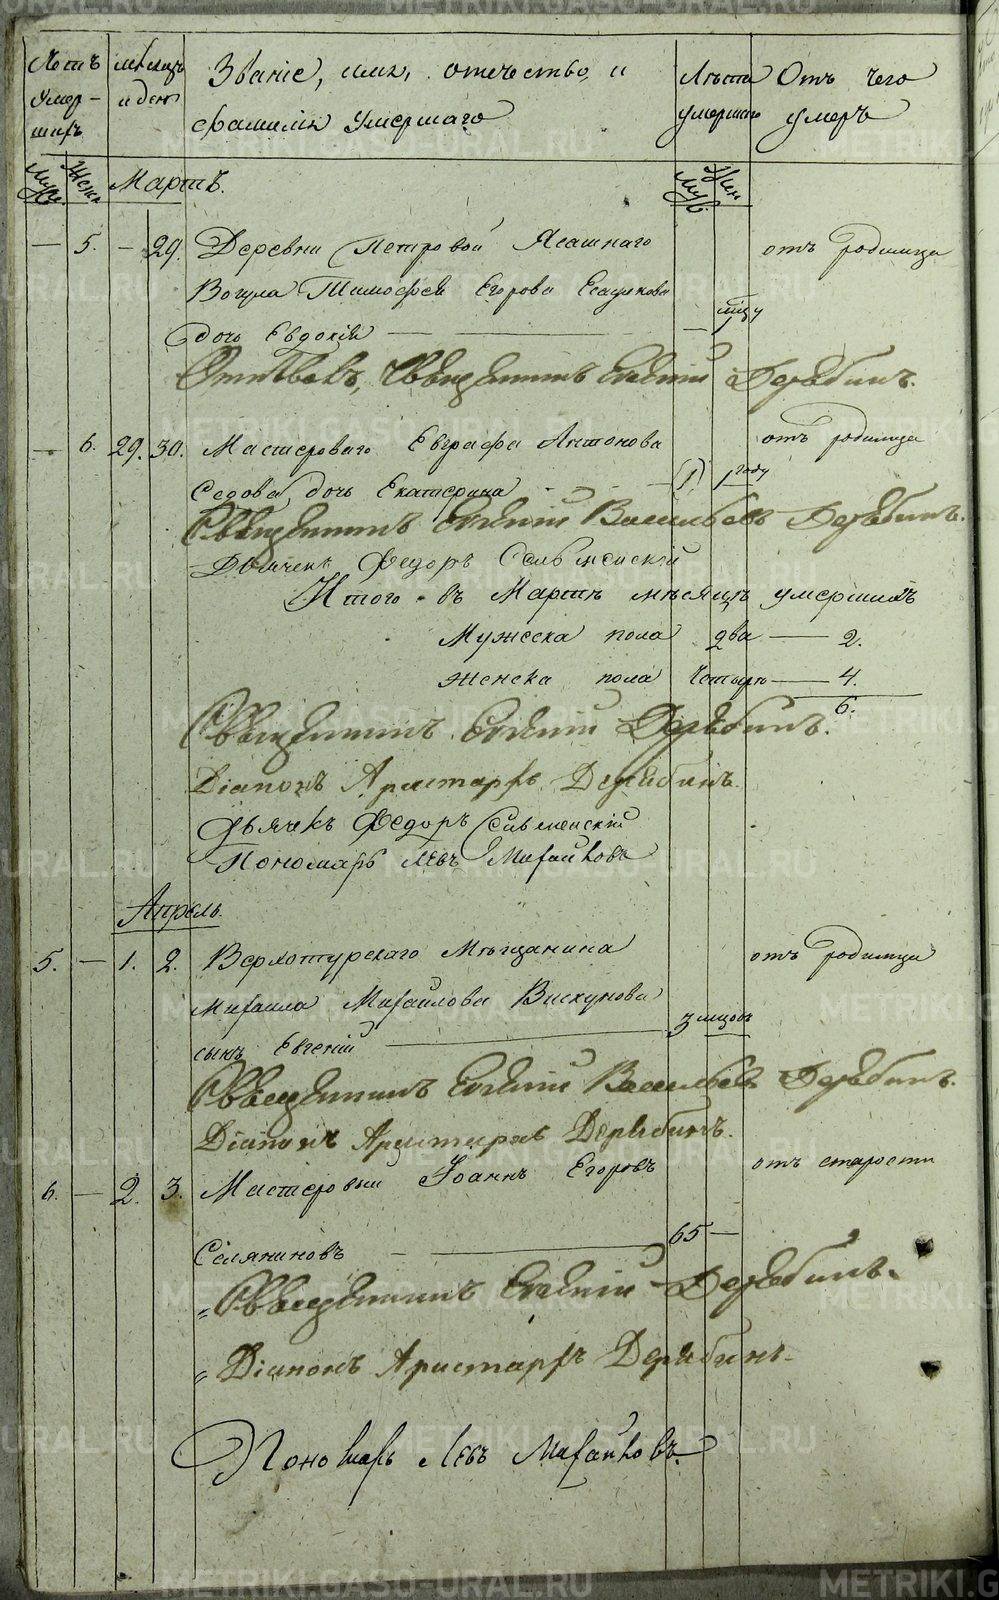 Счетъ умершихъ
мѣсяцъ и день
Званіе, имя, отечество, и
фамилія умершаго
Лѣта умершаго
Отъ чего умеръ
Муж. Женс.
Мартъ.
Муж. Жен.
— 5. — 29. Деревни Петровой Ясашнаго отъ родимца
Вогула Тимофея Егорова
дочь Евдокія — 1
Священникъ Евгеній Дерябинъ.
— 6. 29. 30. Мастероваго Евграфа Антонова отъ родимца
Седова дочь Екатерина — 1 году
Священникъ Евгеній Васильевъ Дерябинъ.
Дьячекъ Федоръ Сельменскій
Итого въ Мартѣ мѣсяцѣ умершихъ
Мужеска пола два — 2.
Женска пола четыре — 4.
6.
Священникъ Евгеній Дерябинъ.
Діаконъ Аристархъ Дерябинъ.
Дьячекъ Федоръ Сельменскій
Пономарь Левъ Михайловъ
Апрель.
5. — 1. 2. Верхотурскаго Мѣщанина отъ родимца
Михаила Михайлова Вискунова
сынъ Евгеній — 3 мцовъ
Священникъ Евгеній Васильевъ Дерябинъ.
Діаконъ Аристархъ Дерябинъ.
6. — 2. 3. Мастеровый Іоаннъ Егоровъ отъ старости
Селяниновъ — 65 —
Священникъ Евгеній Дерябинъ.
Діаконъ Аристархъ Дерябинъ.
Пономарь Левъ Михайловъ.
METRIKI.GASO-URAL.RU